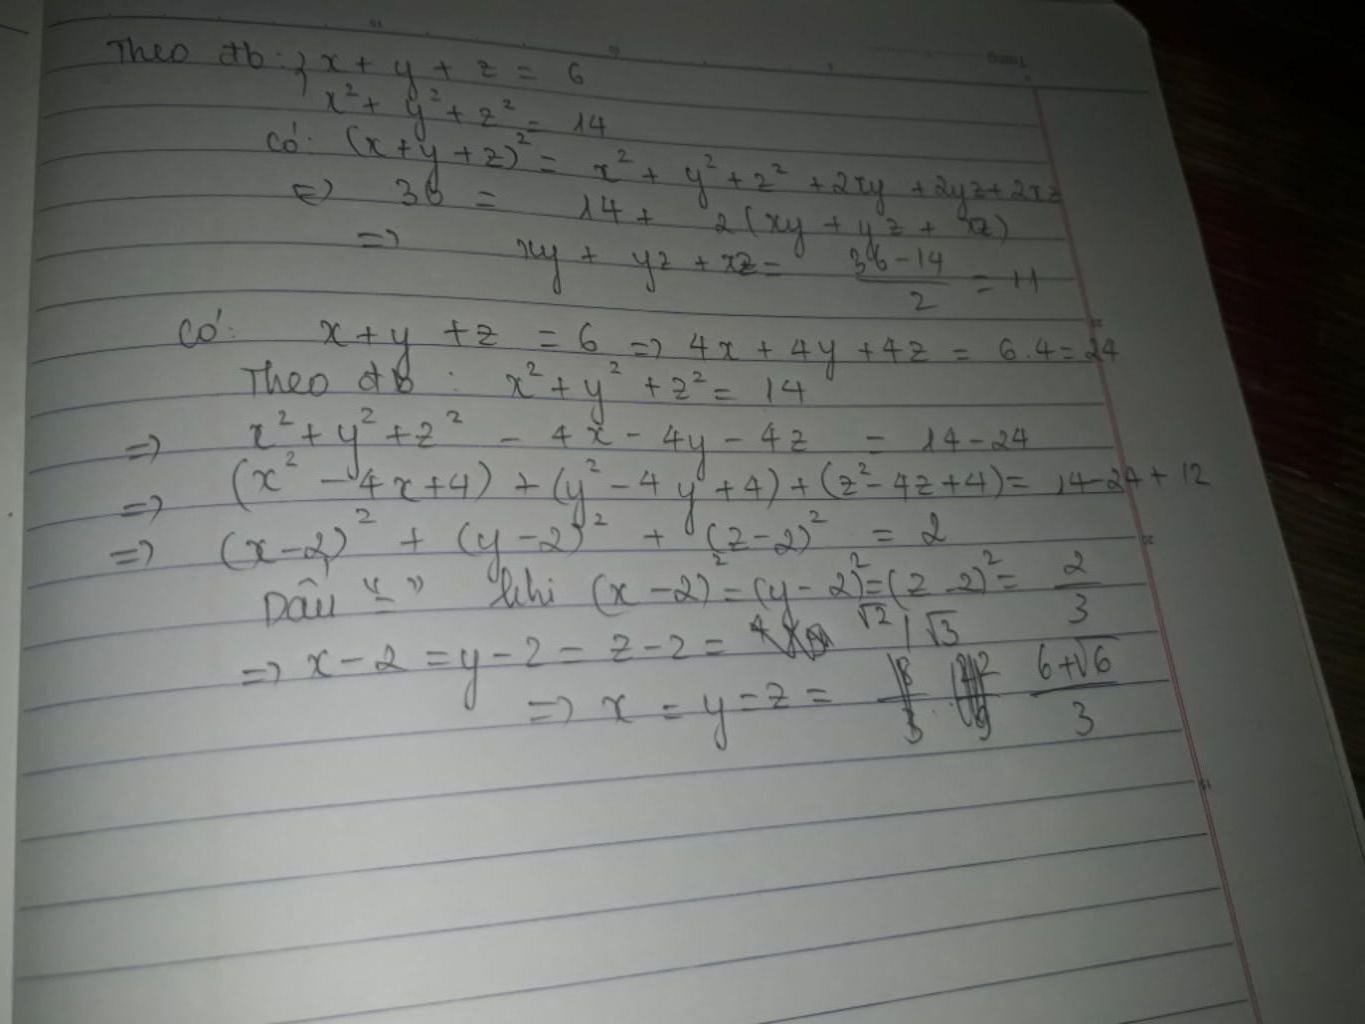 Theo đb: } x + y + z = 6
x² + y² + z² = 14
Có: (x + y + z)² = x² + y² + z² + 2xy + 2yz + 2xz
⇔ 36 = 14 + 2(xy + yz + xz)
=> xy + yz + xz = (36 - 14)/2 = 11
Có: x + y + z = 6 => 4x + 4y + 4z = 6.4 = 24
Theo đb : x² + y² + z² = 14
=> x² + y² + z² - 4x - 4y - 4z = 14 - 24
=> (x² - 4x + 4) + (y² - 4y + 4) + (z² - 4z + 4) = 14 - 24 + 12
=> (x - 2)² + (y - 2)² + (z - 2)² = 2
Dấu "=" khi (x - 2)² = (y - 2)² = (z - 2)² = 2/3
=> x - 2 = y - 2 = z - 2 = √2 / √3
=> x = y = z = (6 + √6)/3